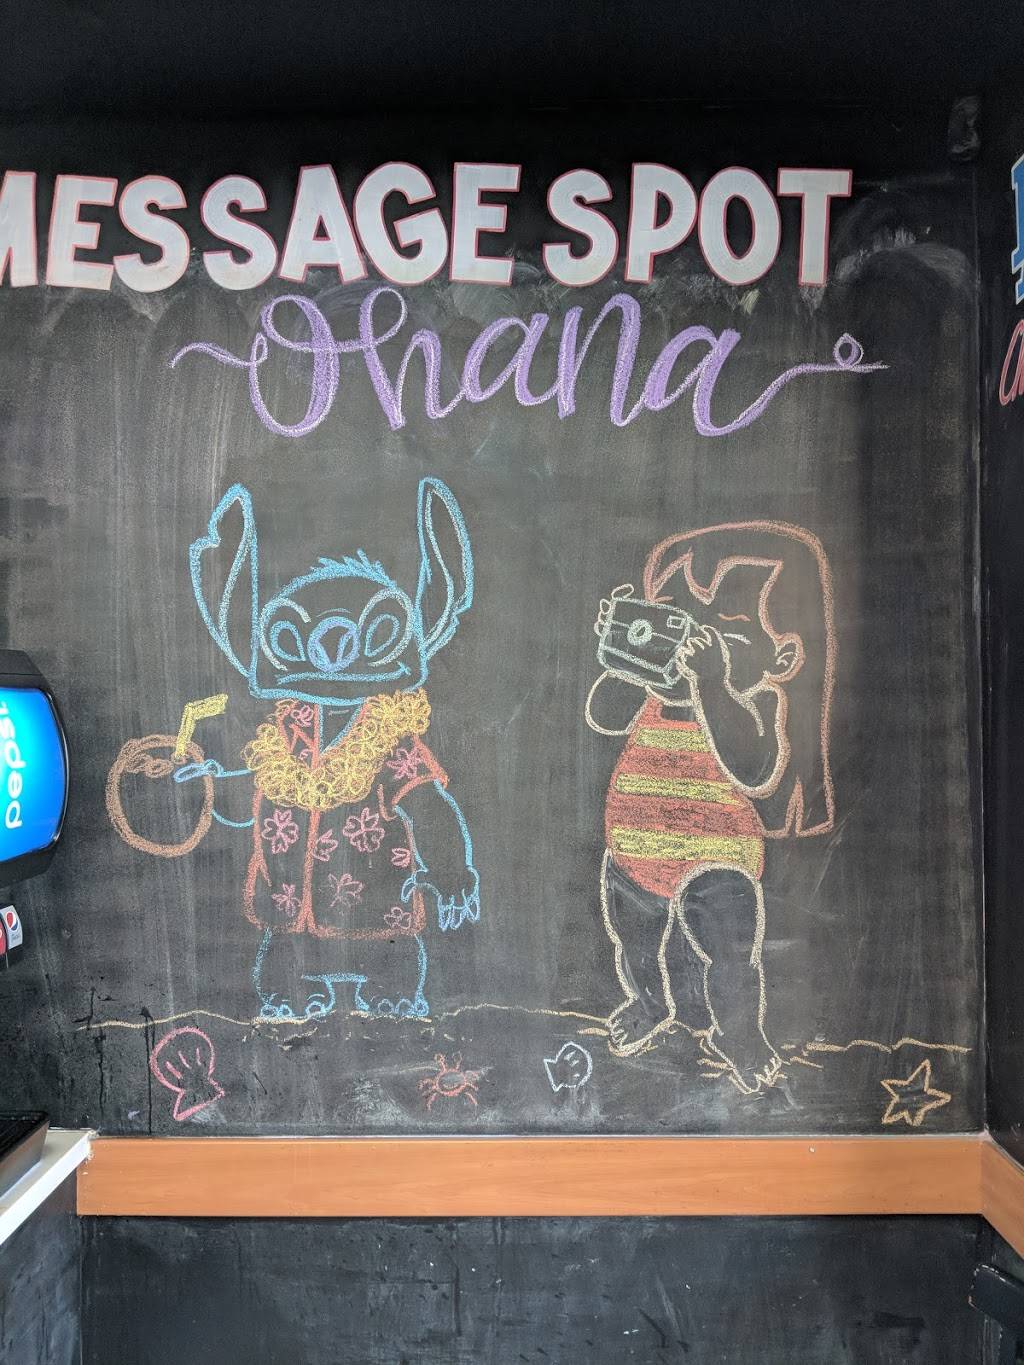 MESSAGE SPOT
Ohana
pepsi